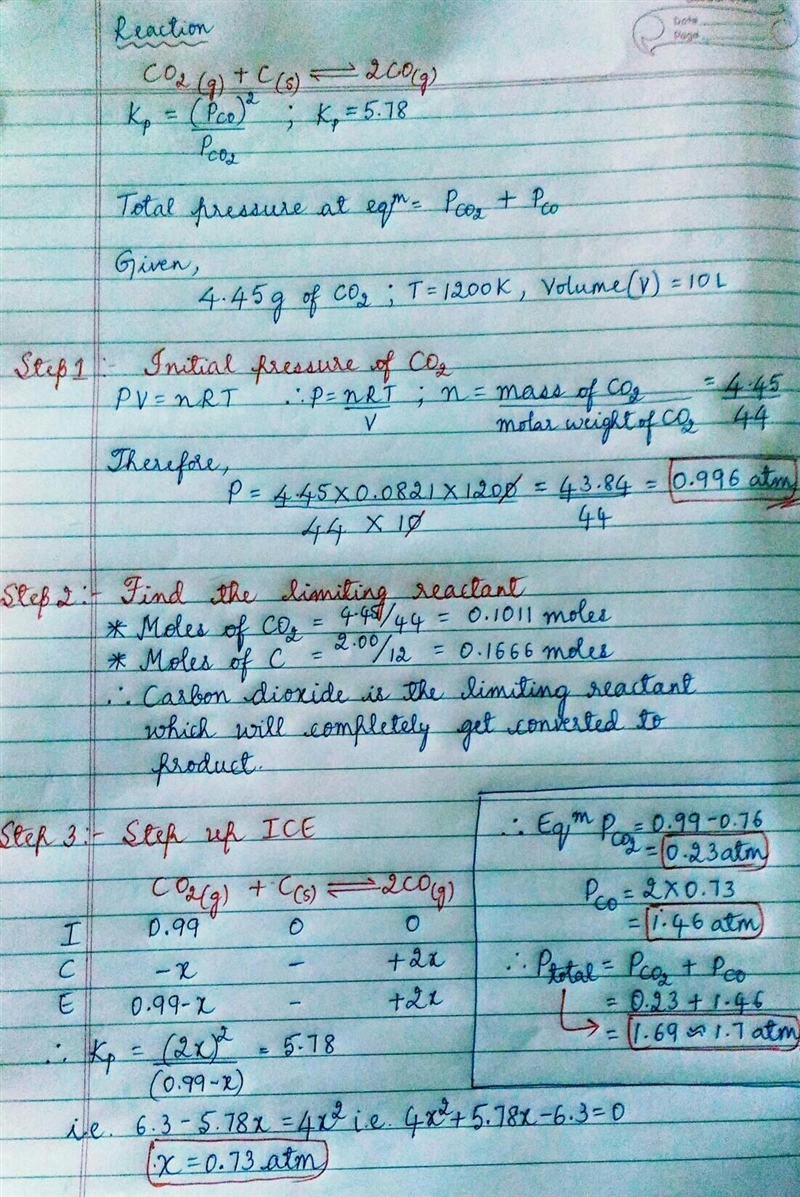 Date
Page
Reaction
CO₂(g) + C(s) ⇌ 2CO(g)
Kp = (PCO)² / PCO₂ ; Kp = 5.78
Total pressure at eqᵐ = PCO₂ + PCO
Given,
4.45g of CO₂ ; T = 1200K, Volume (V) = 10L
Step 1 :- Initial pressure of CO₂
PV = nRT ∴ P = nRT / V ; n = mass of CO₂ / molar weight of CO₂ = 4.45 / 44
Therefore,
P = 4.45 × 0.0821 × 1200 / 44 × 10 = 43.84 / 44 = 0.996 atm
Step 2 :- Find the limiting reactant
* Moles of CO₂ = 4.45/44 = 0.1011 moles
* Moles of C = 2.00/12 = 0.1666 moles
∴ Carbon dioxide is the limiting reactant
which will completely get converted to
product.
Step 3 :- Step up ICE
CO₂(g) + C(s) ⇌ 2CO(g)
I 0.99 0 0
C -x - +2x
E 0.99-x - +2x
∴ Kp = (2x)² / (0.99-x) = 5.78
i.e. 6.3 - 5.78x = 4x² i.e. 4x² + 5.78x - 6.3 = 0
x = 0.73 atm
∴ Eqᵐ PCO₂ = 0.99 - 0.76
= 0.23 atm
PCO = 2 × 0.73
= 1.46 atm
∴ Ptotal = PCO₂ + PCO
= 0.23 + 1.46
= 1.69 ≈ 1.7 atm